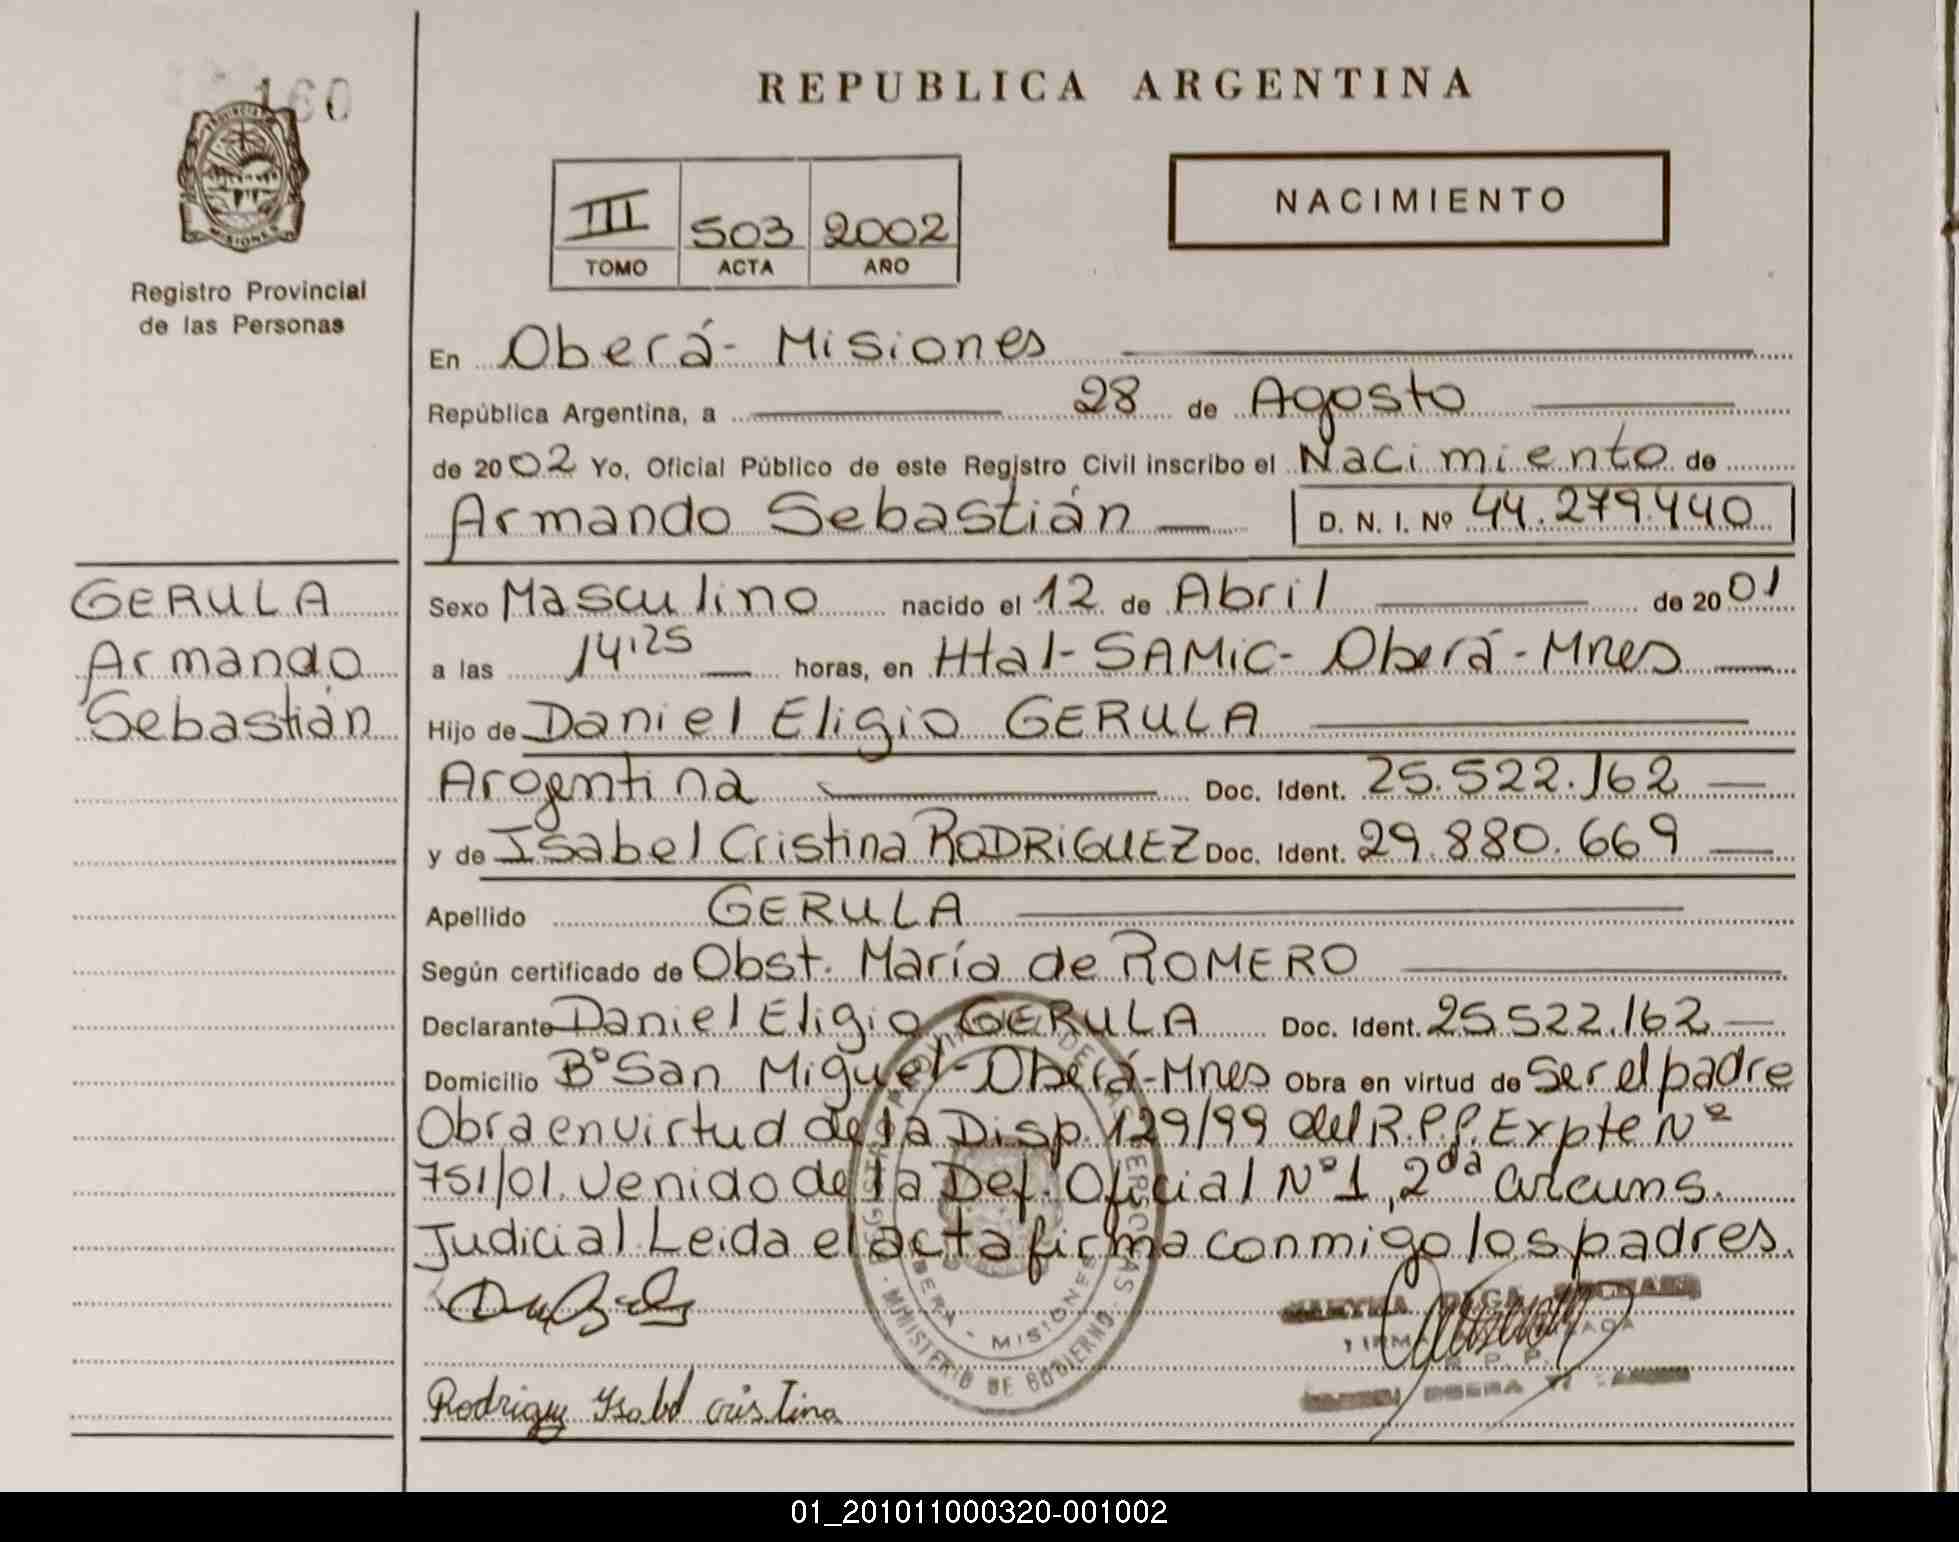 160
REPUBLICA ARGENTINA
NACIMIENTO
III 503 2002
TOMO ACTA AÑO
PROVINCIA
MISIONES
Registro Provincial
de las Personas
En Oberá - Misiones
República Argentina, a 28 de Agosto
de 2002 Yo, Oficial Público de este Registro Civil inscribo el Nacimiento de
Armando Sebastián D. N. I. Nº 44.279.440
GERULA
Armando
Sebastián
Sexo Masculino nacido el 12 de Abril de 2001
a las 14:25 horas, en Htal - SAMiC - Oberá - Mnes
Hijo de Daniel Eligio GERULA
Argentina Doc. Ident. 25.522.162
y de Isabel Cristina RODRiGUEZ Doc. Ident. 29.880.669
Apellido GERULA
Según certificado de Obst. María de ROMERO
Declarante Daniel Eligio GERULA Doc. Ident. 25.522.162
Domicilio Bº San Miguel - Oberá - Mnes Obra en virtud de Ser el padre
Obra en virtud de la Disp. 129/99 del R.P.P. Expte Nº
751/01. Venido de la Def. Oficial Nº 1, 2da Circuns.
Judicial. Leida el acta firma conmigo los padres.
MINISTERIO DE GOBIERNO
OBERA - MISIONES
Rodriguez Ysabel cristina
R. P. P.
01_201011000320-001002